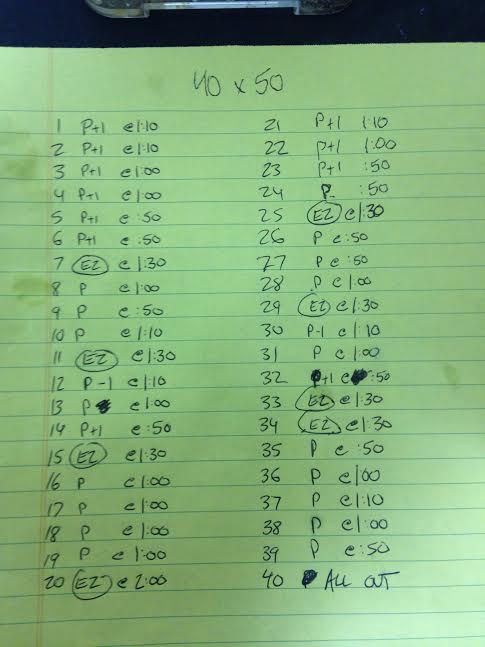 40 x 50
1 P+1 @ 1:10
2 P+1 @ 1:10
3 P+1 @ 1:00
4 P+1 @ 1:00
5 P+1 @ :50
6 P+1 @ :50
7 EZ @ 1:30
8 P @ 1:00
9 P @ :50
10 P @ 1:10
11 EZ @ 1:30
12 P-1 @ 1:10
13 P @ 1:00
14 P+1 @ :50
15 EZ @ 1:30
16 P @ 1:00
17 P @ 1:00
18 P @ 1:00
19 P @ 1:00
20 EZ @ 2:00
21 P+1 1:10
22 P+1 1:00
23 P+1 :50
24 P :50
25 EZ @ 1:30
26 P @ :50
27 P @ :50
28 P @ 1:00
29 EZ @ 1:30
30 P-1 @ 1:10
31 P @ 1:00
32 P+1 @ :50
33 EZ @ 1:30
34 EZ @ 1:30
35 P @ :50
36 P @ 1:00
37 P @ 1:10
38 P @ 1:00
39 P @ :50
40 ALL OUT